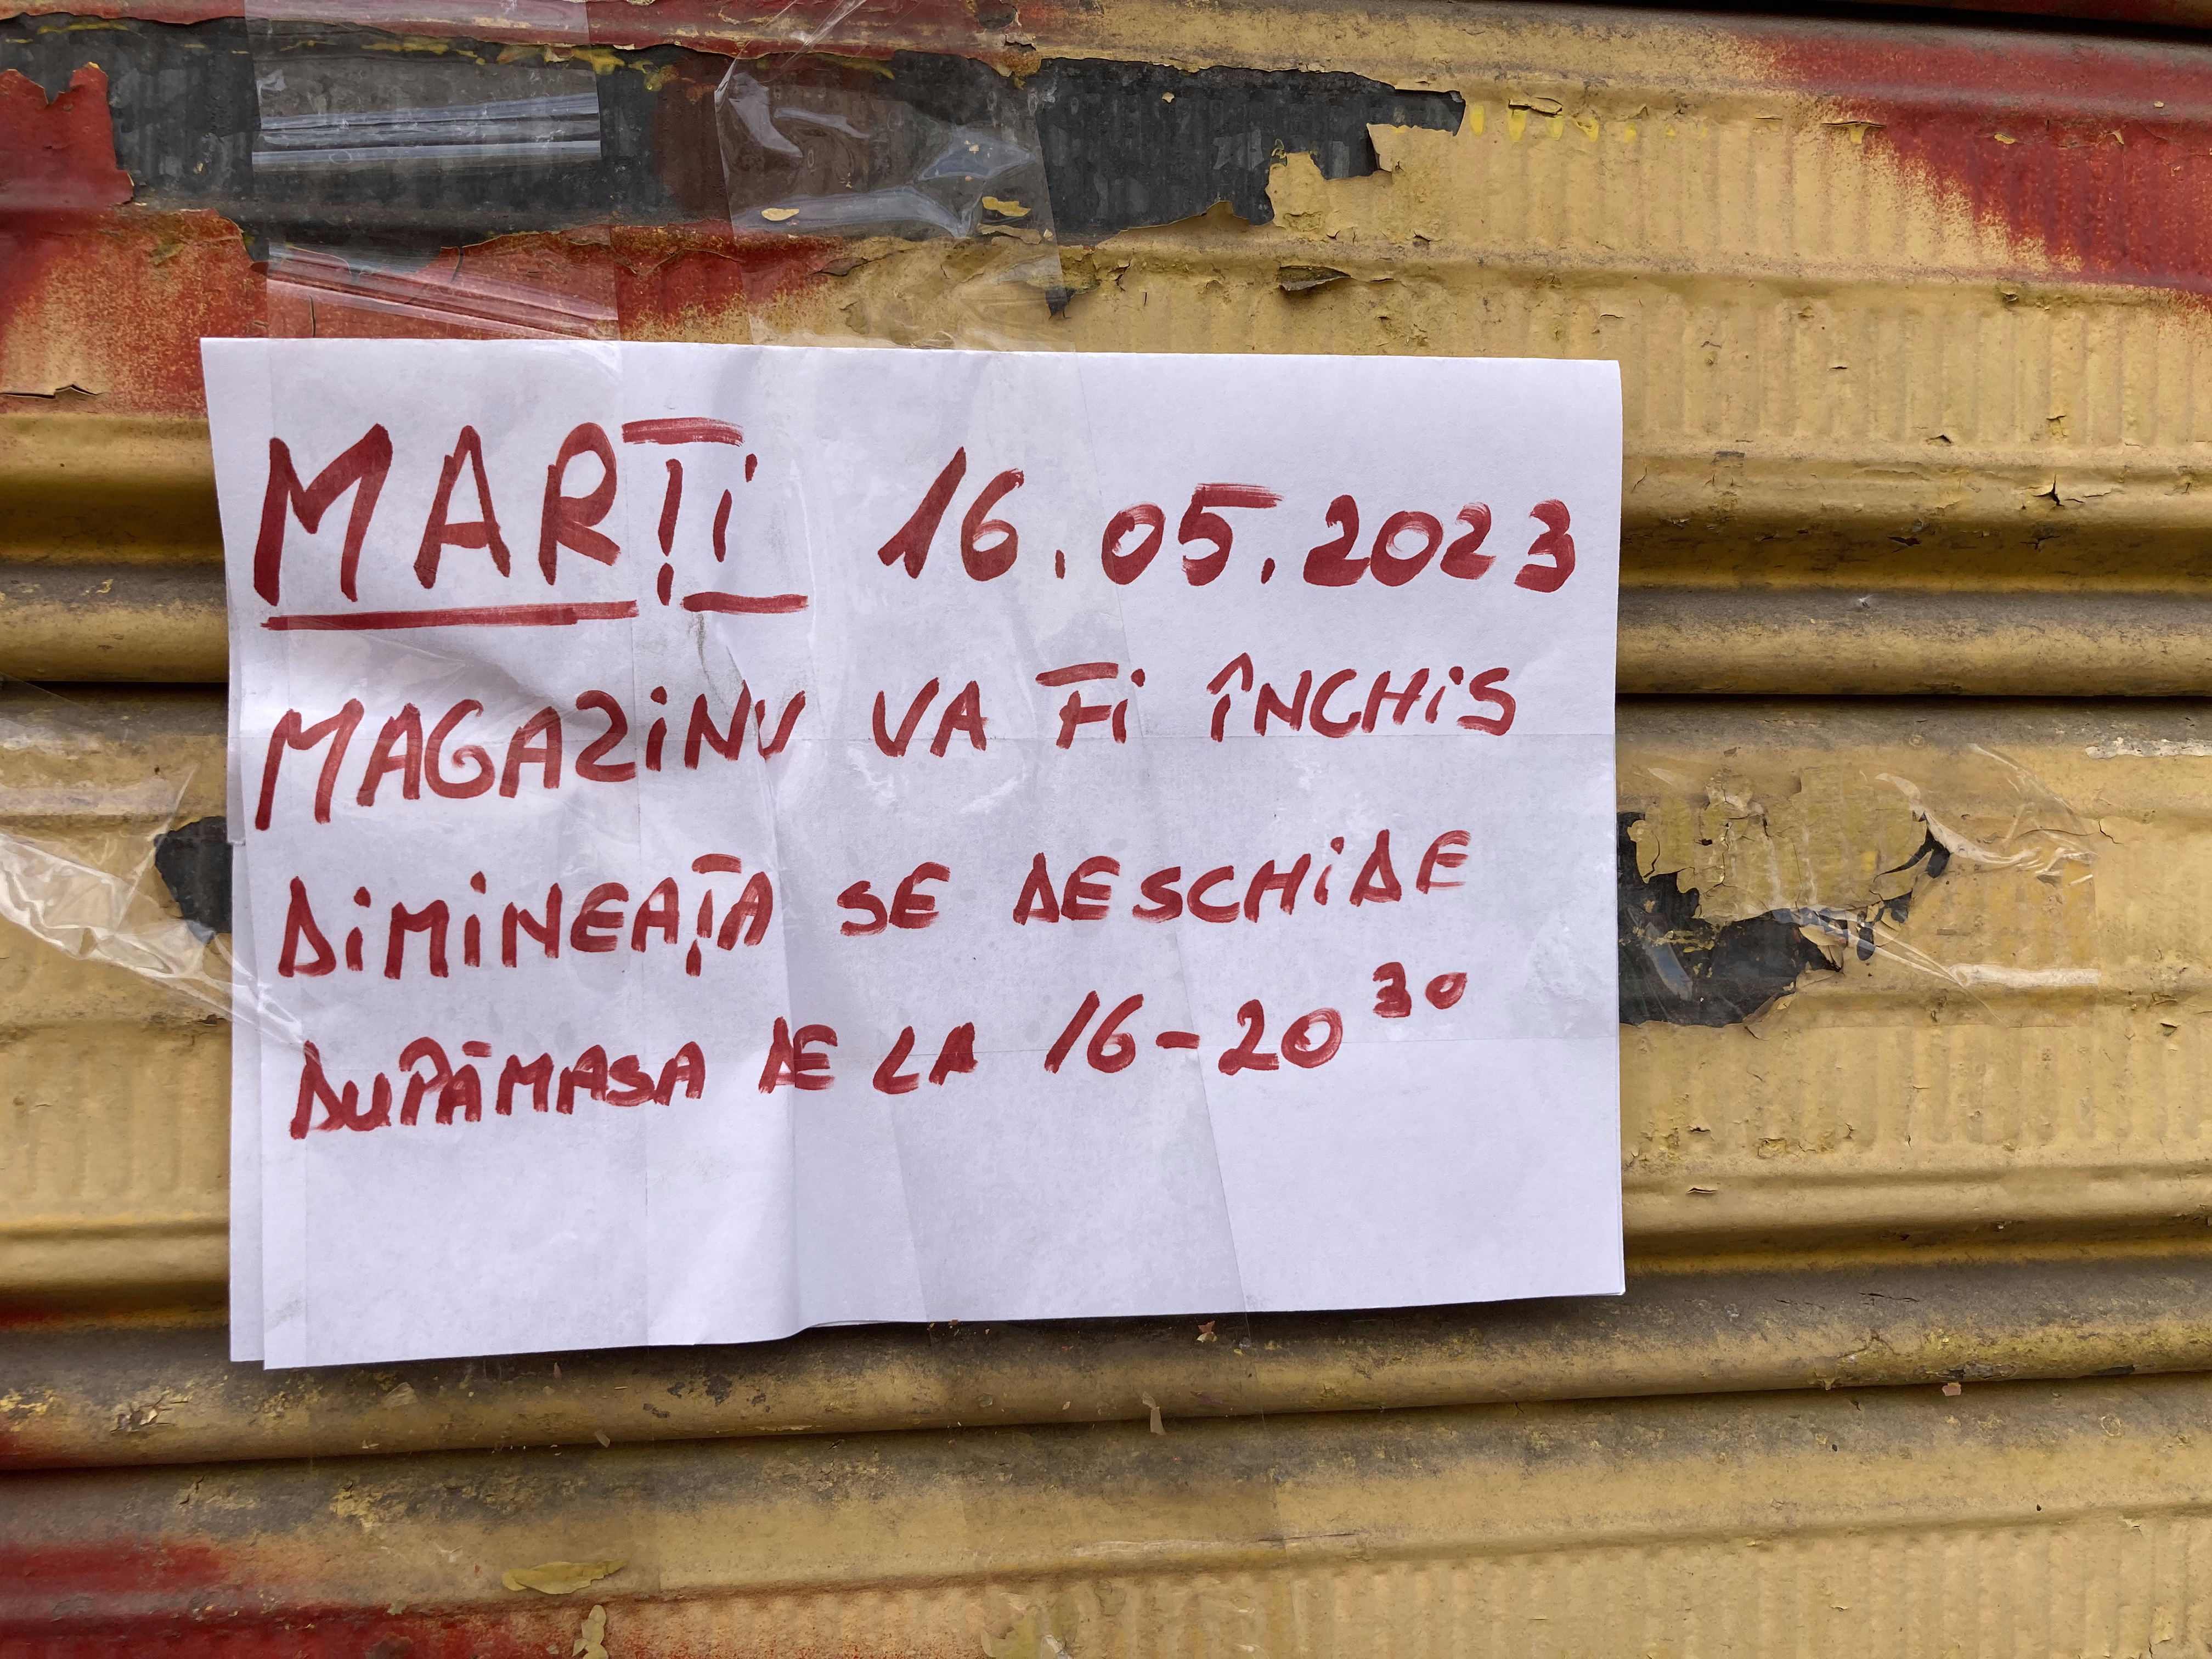 MARȚI 16.05.2023
MAGAZINU VA FI ÎNCHIS
DIMINEAȚA SE DESCHIDE
DUPĂMASA DE LA 16-20³⁰